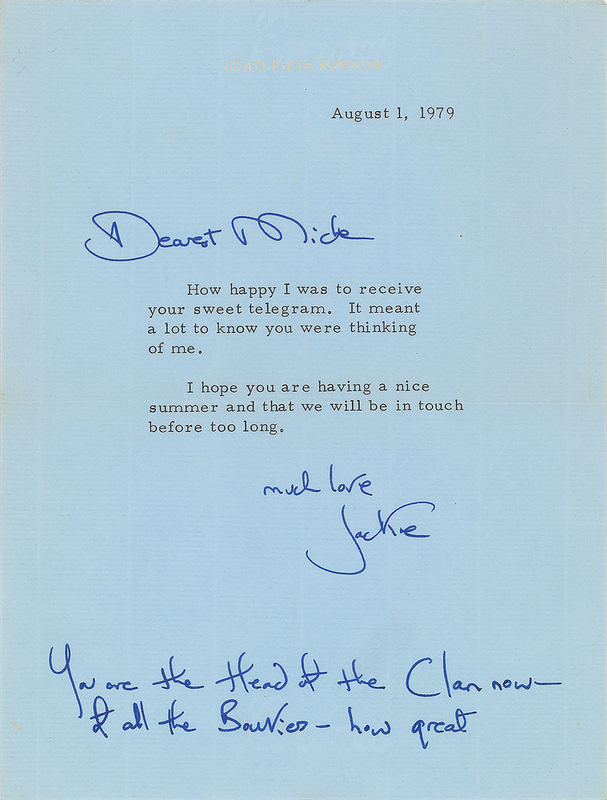 1040 FIFTH AVENUE
August 1, 1979
Dearest Mick
How happy I was to receive
your sweet telegram. It meant
a lot to know you were thinking
of me.
I hope you are having a nice
summer and that we will be in touch
before too long.
much love
Jackie
You are the Head of the Clan now—
of all the Bouviers — how great